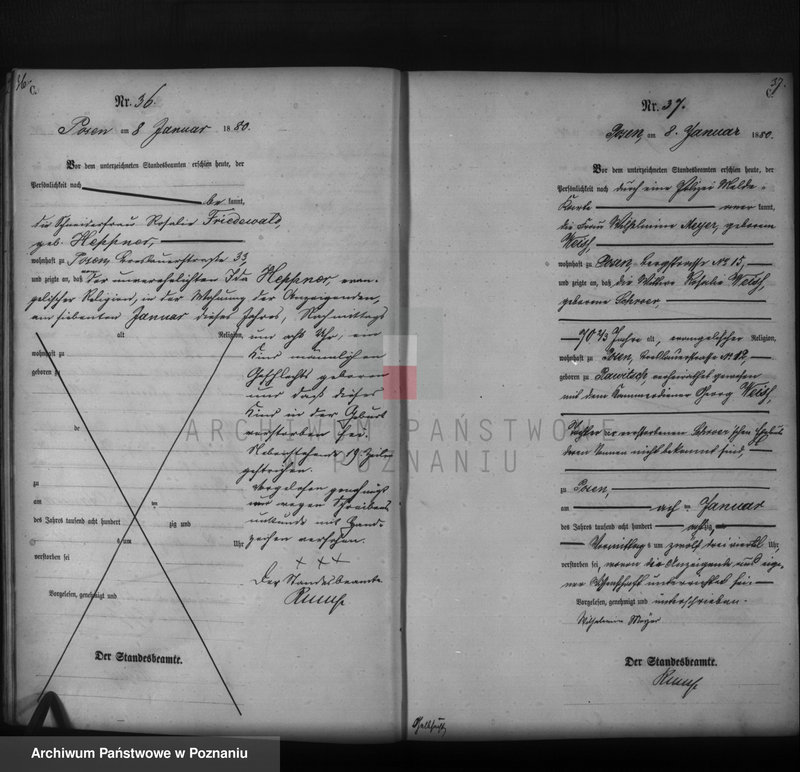 36.
C.
Nr. 36.
Posen am 8 Januar 1880.
Vor dem unterzeichneten Standesbeamten erschien heute, der
Persönlichkeit nach
be kannt,
die Schneiderfrau Rosalie Friedewald,
geb. Heppner,
wohnhaft zu Posen, Breslauerstraße 33
und zeigte an, daß von der unverehelichten Ida Heppner, evan-
gelischer Religion, in der Wohnung der Anzeigenden,
am siebenten Januar dieses Jahres, Nachmittags
alt Religion,
um acht Uhr, ein
wohnhaft zu
Kind männlichen
geboren zu
Geschlechts geboren
und daß dieses
Kind in der Geburt
de
verstorben sei.
Nebenstehende 19 Zeilen
gestrichen.
zu
Vorgelesen genehmigt
am ten
und wegen Schreibens
des Jahres tausend acht hundert zig und
unkunde mit Hand-
um Uhr
zeichen versehen.
verstorben sei
+ + +
Der Standesbeamte
Vorgelesen, genehmigt und
Der Standesbeamte.
37.
C.
Nr. 37.
Posen, am 8. Januar 1880.
Vor dem unterzeichneten Standesbeamten erschien heute, der
Persönlichkeit nach durch eine Polizei Melde-
Karte aner kannt,
die Frau Wilhelmine Meyer, geborene
wohnhaft zu Posen, bergstraße No 15,
und zeigte an, daß die Wittwe Rosalie
geborene
70 Jahre alt, evangelischer Religion,
wohnhaft zu Posen, Breslauerstraße No 12,
geboren zu Rawitsch verheirathet gewesen
mit dem Kammerdiener Georg
Tochter der verstorbenen
deren Namen nicht bekannt sind,
zu Posen,
am acht ten Januar
des Jahres tausend acht hundert achtzig
Vormittag s um zwölf dreiviertel Uhr,
verstorben sei, wovon die Anzeigende aus eige-
ner Wissenschaft unterrichtet sei
Vorgelesen, genehmigt und unterschrieben.
Wilhelmine Meyer
Der Standesbeamte.
ARCHIWUM PAŃSTWOWE
POZNANIU
Archiwum Państwowe w Poznaniu